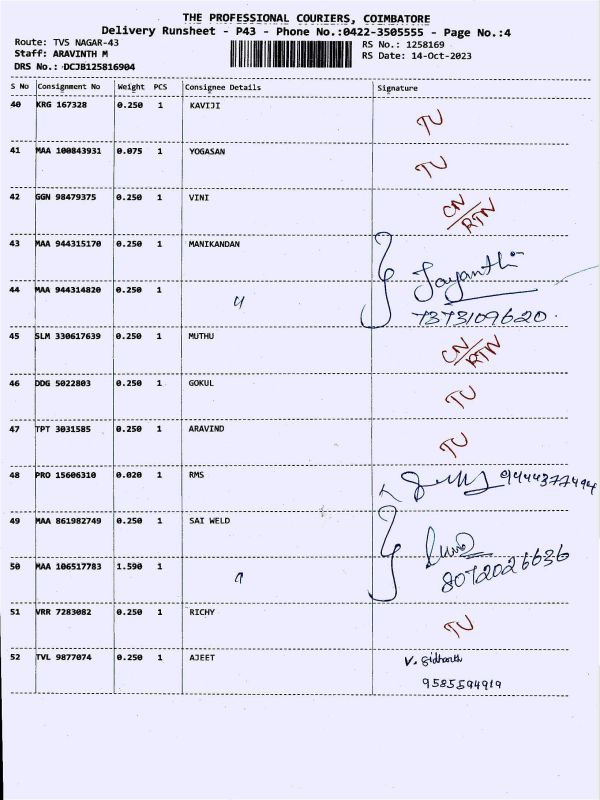 THE PROFESSIONAL COURIERS, COIMBATORE
Delivery Runsheet - P43 - Phone No.:0422-3505555 - Page No.:4
Route: TVS NAGAR-43 RS No.: 1258169
Staff: ARAVINTH M RS Date: 14-Oct-2023
DRS No.: DCJB125816904
S No Consignment No Weight PCS Consignee Details Signature
40 KRG 167328 0.250 1 KAVIJI TU
41 MAA 100843931 0.075 1 YOGASAN TU
42 GGN 98479375 0.250 1 VINI CN/RTN
43 MAA 944315170 0.250 1 MANIKANDAN Jayanthi
44 MAA 944314820 0.250 1 7373109620
45 SLM 330617639 0.250 1 MUTHU CN/RTN
46 DDG 5022803 0.250 1 GOKUL TU
47 TPT 3031585 0.250 1 ARAVIND TU
48 PRO 15606310 0.020 1 RMS 9444377494
49 MAA 861982749 0.250 1 SAI WELD
50 MAA 106517783 1.590 1 8072026636
51 VRR 7283082 0.250 1 RICHY TU
52 TVL 9877074 0.250 1 AJEET V. Sidharth
9585594919